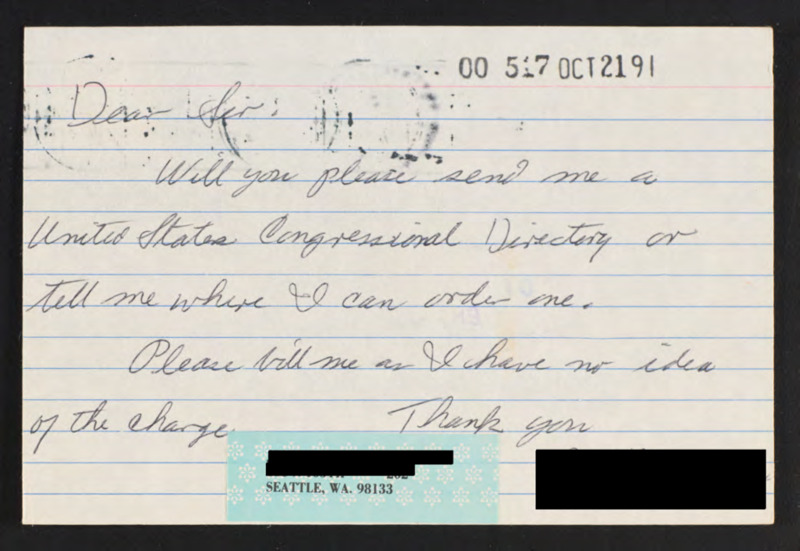 00 517 OCT2191
Dear Sir:
Will you please send me a
United States Congressional Directory or
tell me where I can order one.
Please bill me as I have no idea
of the charge.
Thank you
SEATTLE, WA. 98133